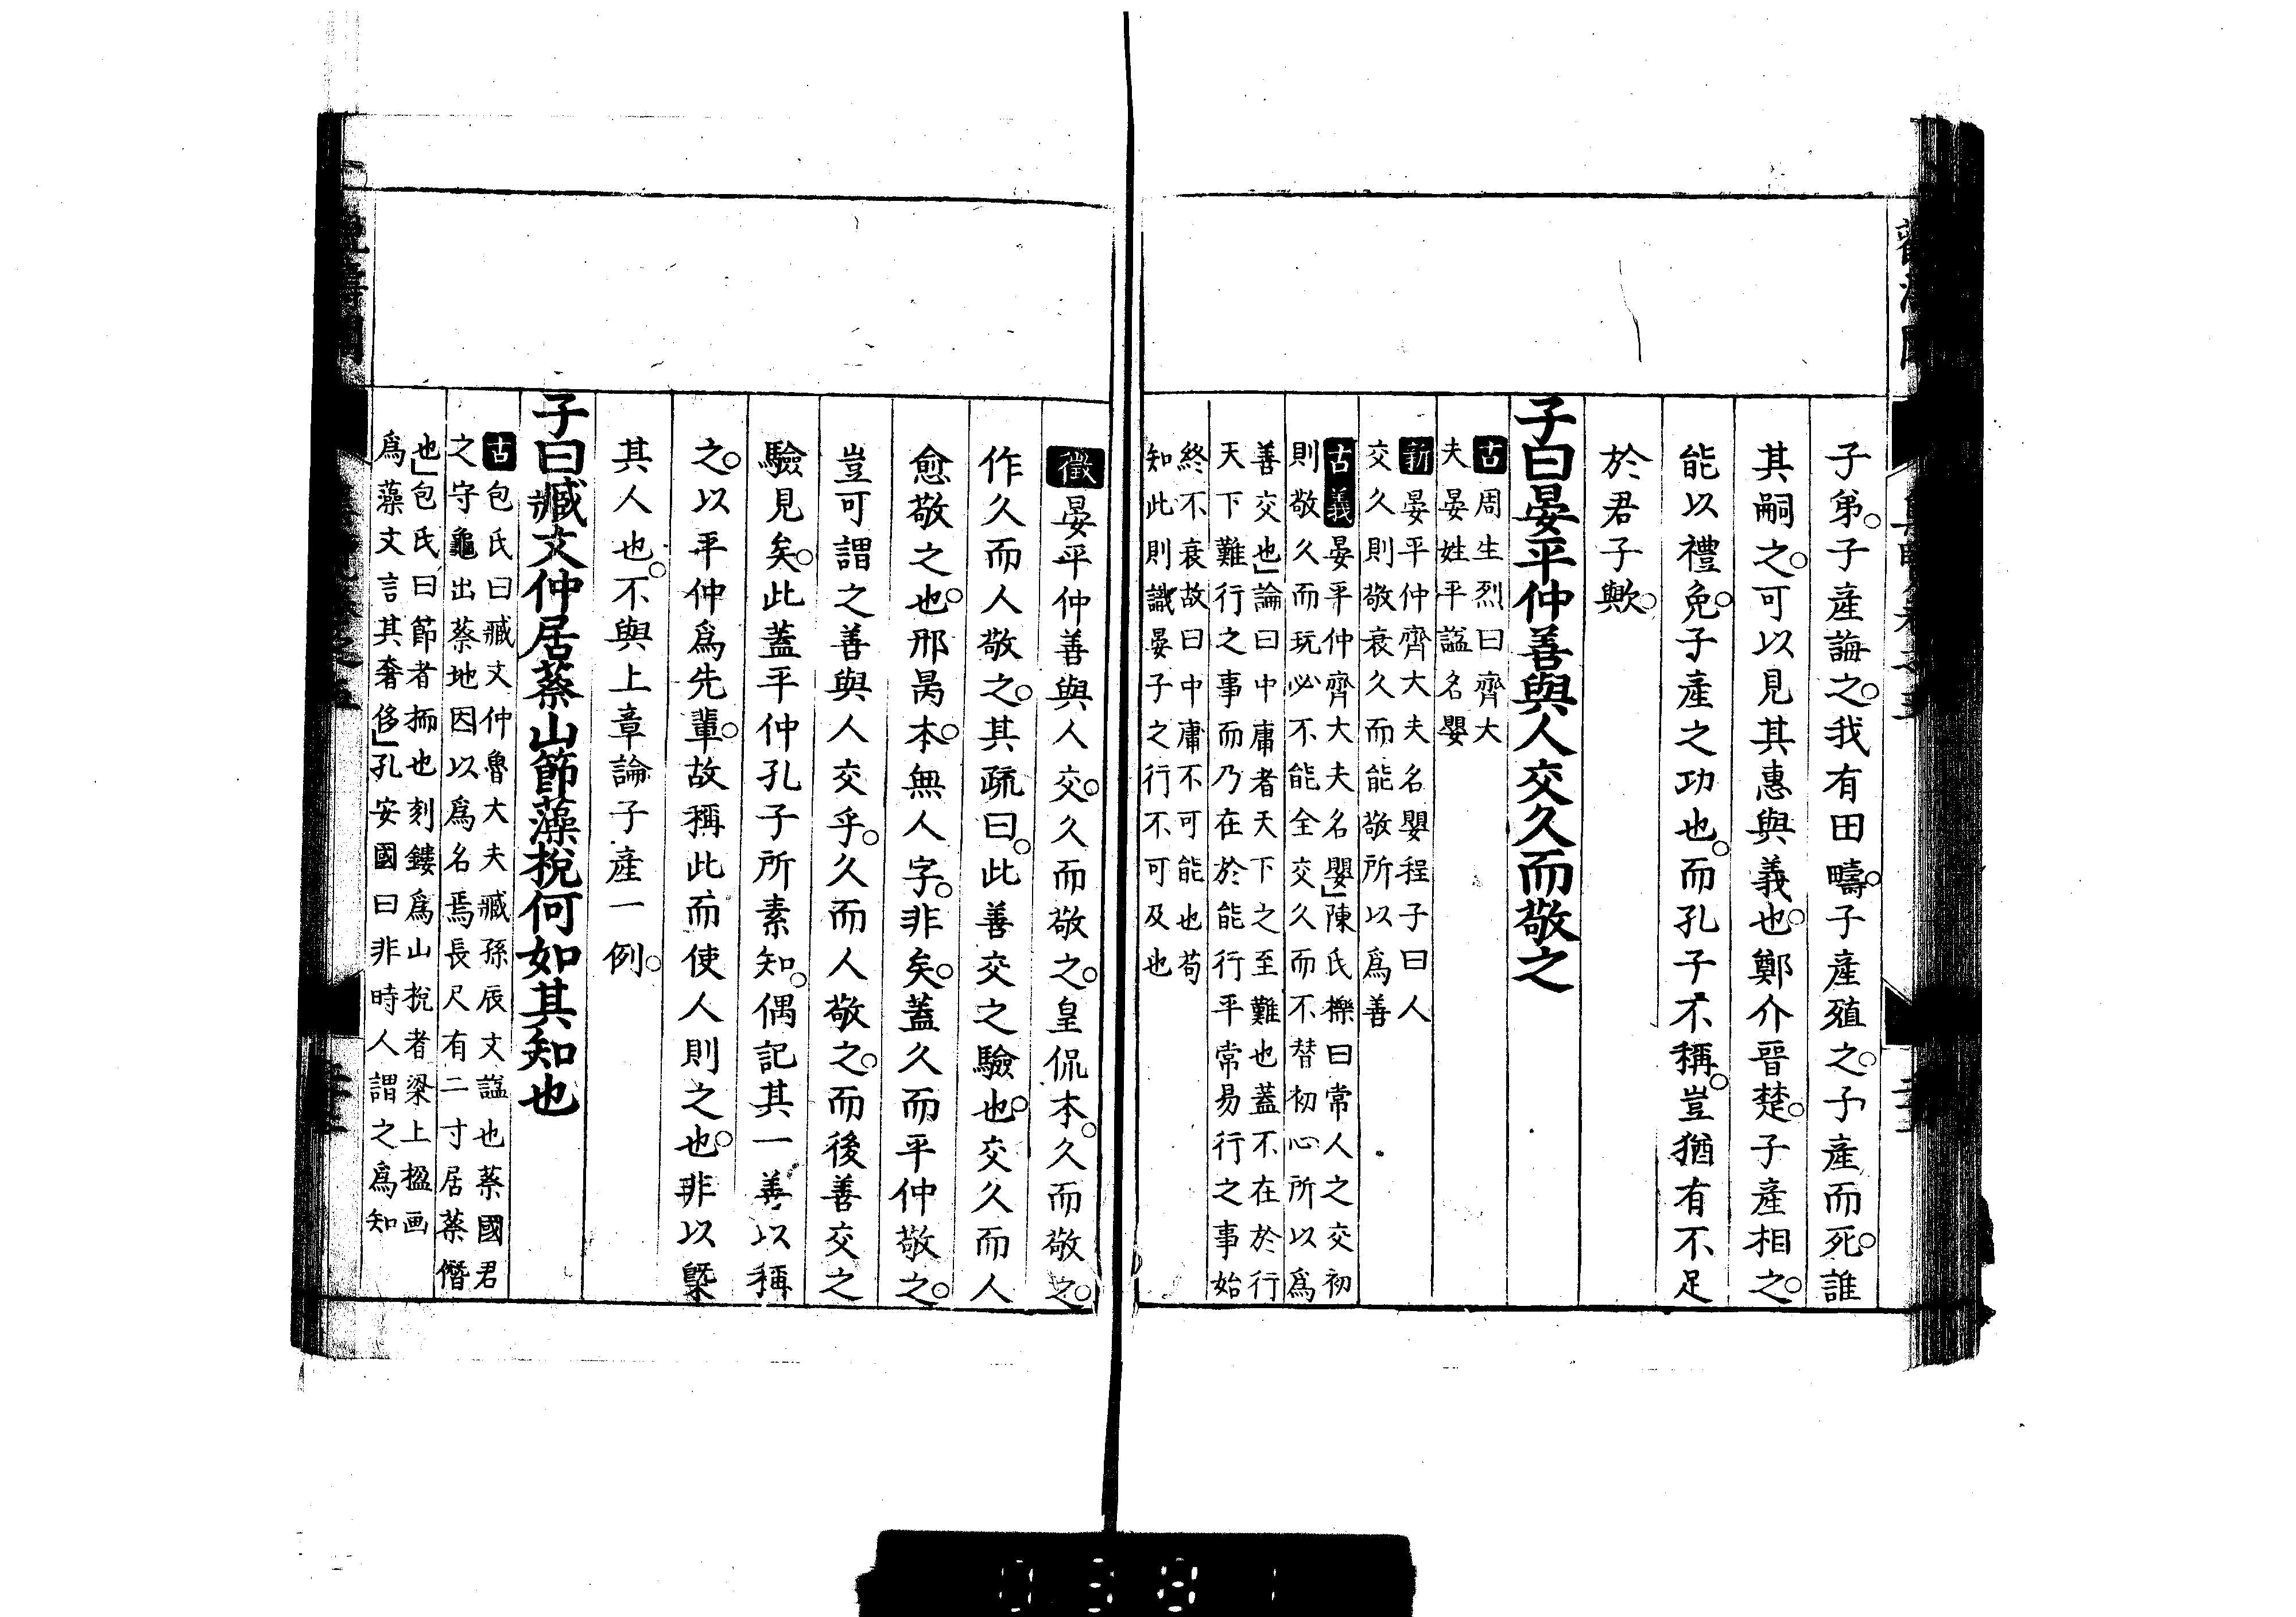 子弟。子產誨之。我有田疇。子產殖之。子產而死。誰
其嗣之。可以見其惠與義也。鄭介晉楚。子產相之。
能以禮免。子產之功也。而孔子不稱。豈猶有不足
於君子歟。
子曰晏平仲善與人交久而敬之
古周生烈曰齊大
夫晏姓平謚名嬰
新晏平仲齊大夫名嬰程子曰人
交久則敬衰久而能敬所以爲善
古義晏平仲齊大夫名嬰」陳氏櫟曰常人之交初
則敬久而玩必不能全交久而不替初心所以爲
善交也」論曰中庸者天下之至難也蓋不在於行
天下難行之事而乃在於能行平常易行之事始
終不衰故曰中庸不可能也苟
知此則識晏子之行不可及也
徵晏平仲善與人交。久而敬之。皇侃本。久而敬之。
作久而人敬之。其疏曰。此善交之驗也。交久而人
愈敬之也。邢昺本。無人字。非矣。蓋久而平仲敬之。
豈可謂之善與人交乎。久而人敬之。而後善交之
驗見矣。此蓋平仲孔子所素知。偶記其一善以稱
之。以平仲爲先輩。故稱此而使人則之也。非以槩
其人也。不與上章論子產一例。
子曰臧文仲居蔡山節藻梲何如其知也
古包氏曰臧文仲魯大夫臧孫辰文謚也蔡國君
之守龜出蔡地因以爲名焉長尺有二寸居蔡僭
也」包氏曰節者栭也刻鏤爲山梲者梁上楹画
爲藻文言其奢侈」孔安國曰非時人謂之爲知
0381